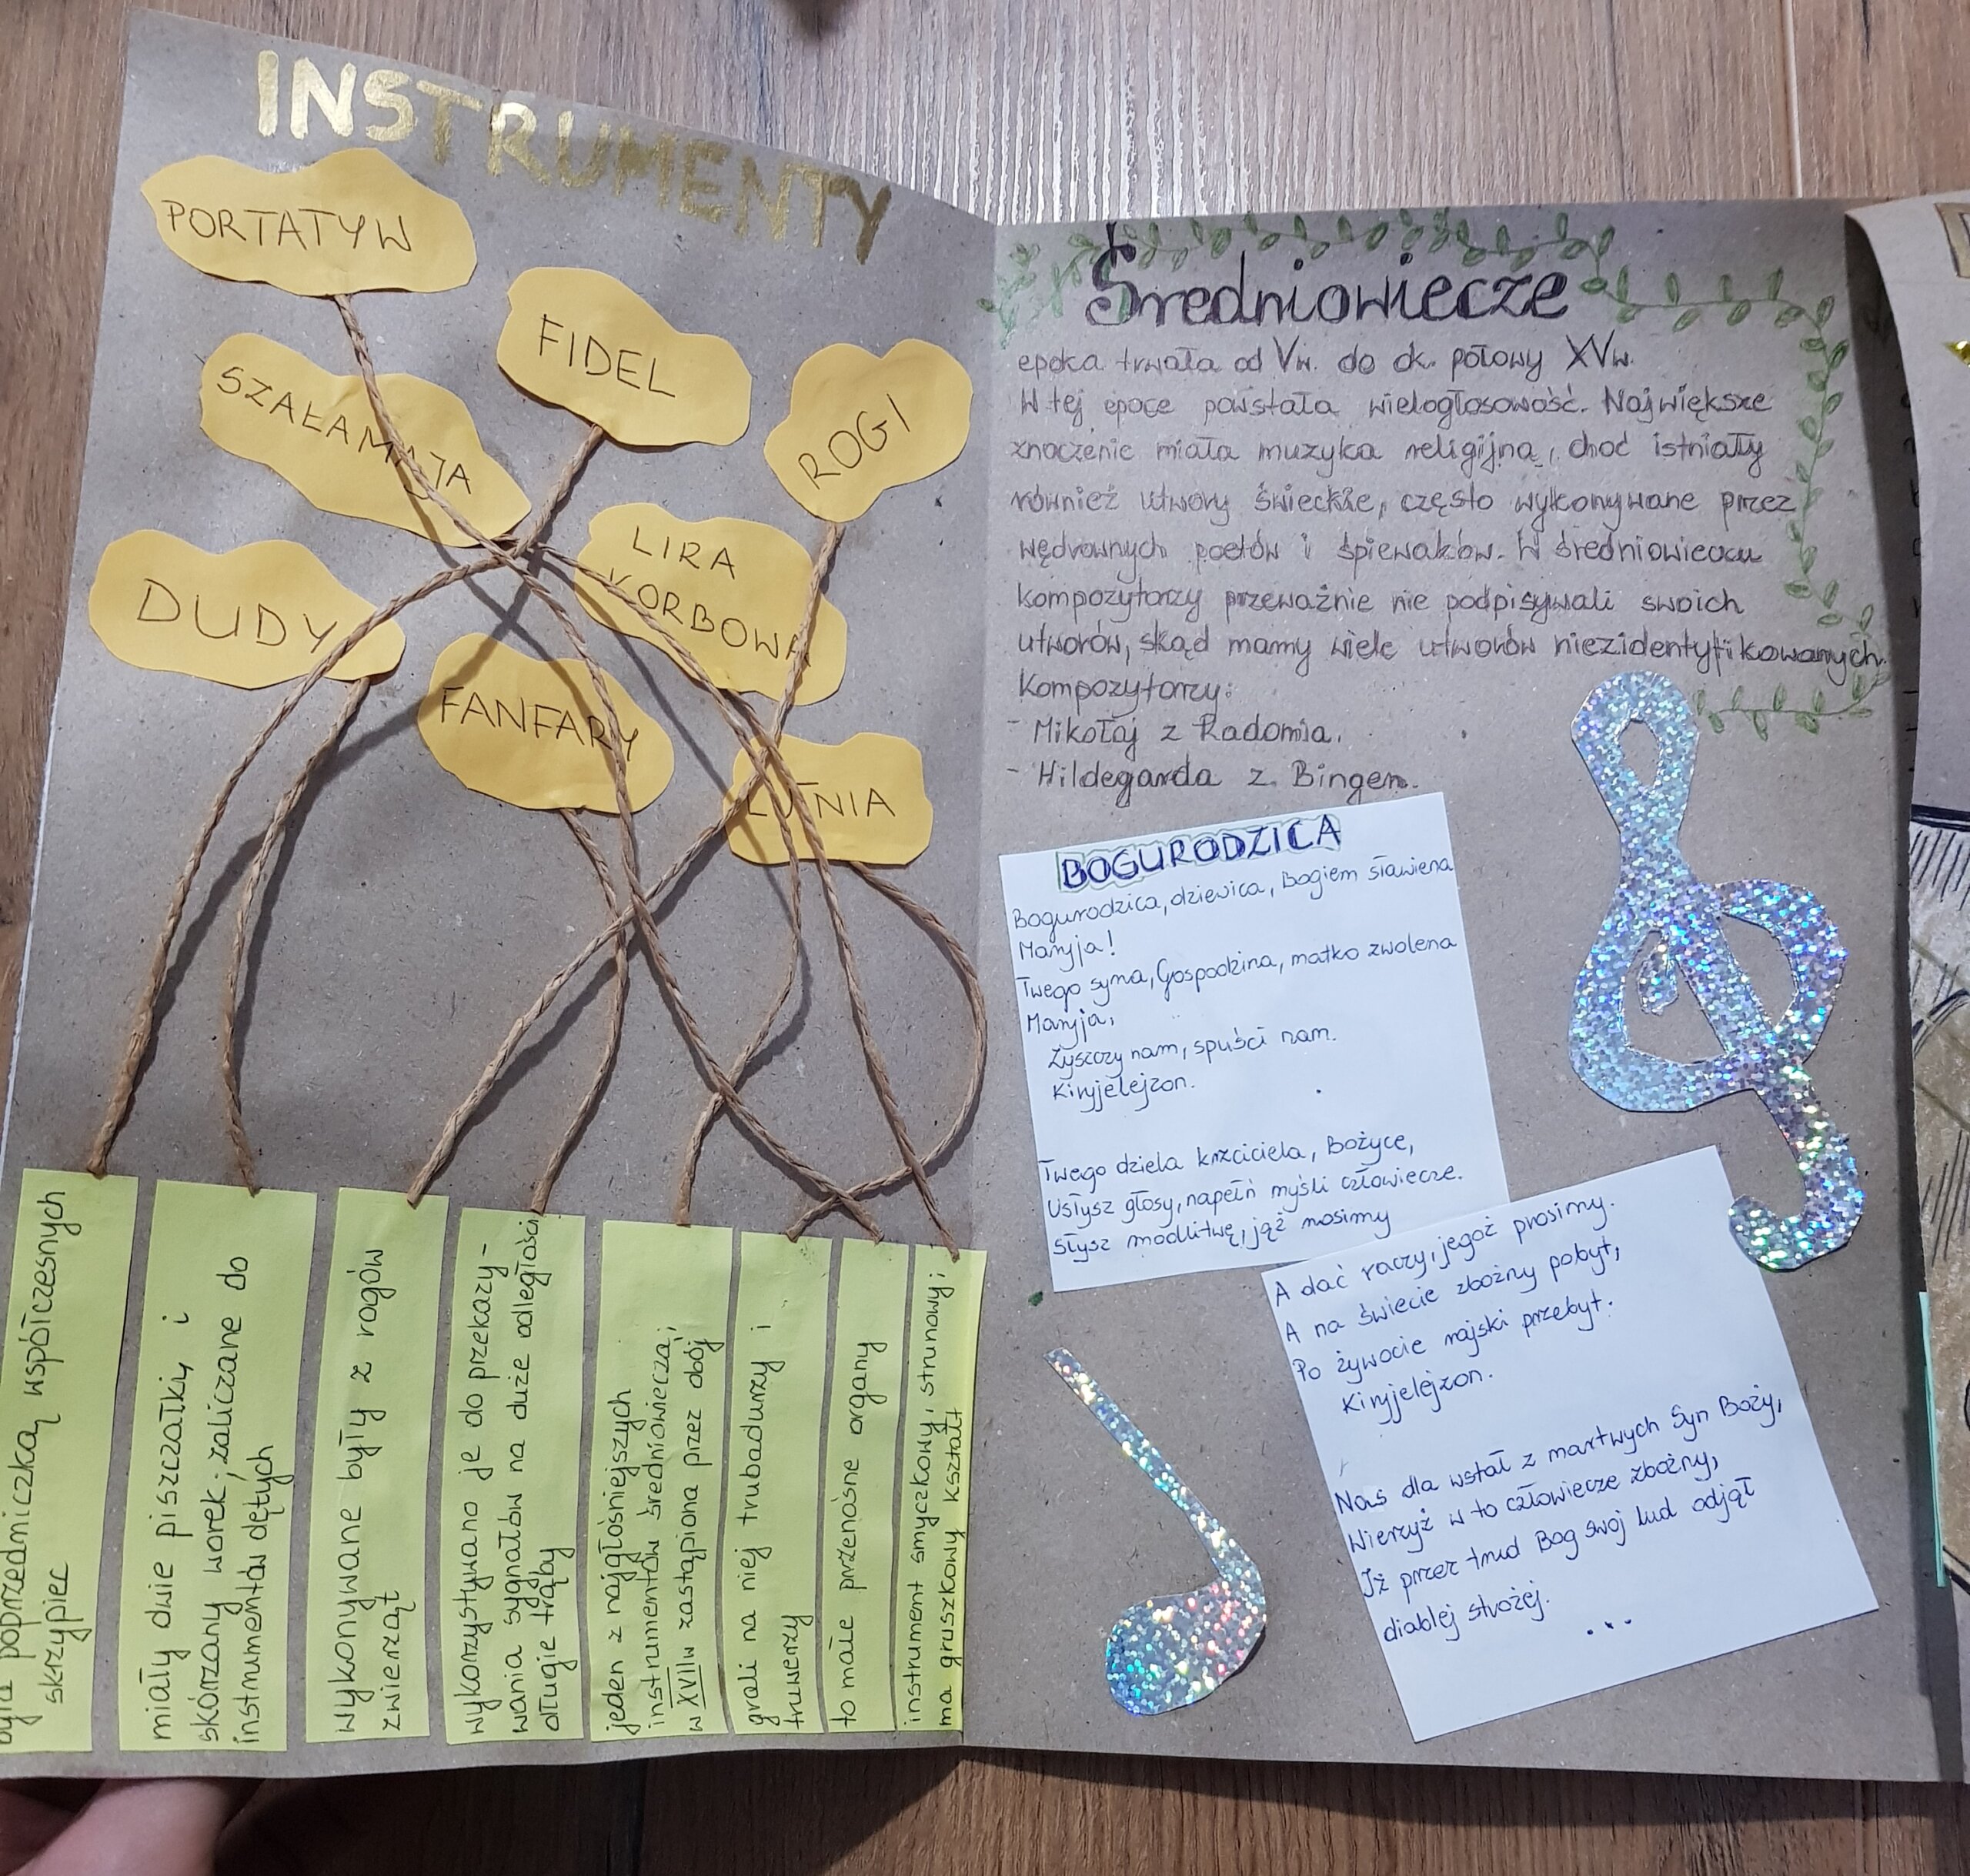 INSTRUMENTY
PORTATYW
FIDEL
SZAŁAMAJA
ROGI
LIRA
KORBOWA
DUDY
FANFARY
LUTNIA
poprzedniczką współczesnych
skrzypiec
miały dwie piszczałki i
skórzany worek; zaliczane do
instrumentów dętych
wykonywane były z rogów
zwierząt
wykorzystywano je do przekazy-
wania sygnałów na duże odległości
długie trąby
jeden z najgłośniejszych
instrumentów średniowiecza;
w XVIIw zastąpiona przez obój
grali na niej trubadurzy i
truwerzy
to małe przenośne organy
instrument smyczkowy, strunowy;
ma gruszkowy kształt
Średniowiecze
epoka trwała od Vw. do ok. połowy XVw.
W tej epoce powstała wielogłosowość. Największe
znaczenie miała muzyka religijna, choć istniały
również utwory świeckie, często wykonywane przez
wędrownych poetów i śpiewaków. W średniowieczu
kompozytorzy przeważnie nie podpisywali swoich
utworów, skąd mamy wiele utworów niezidentyfikowanych.
Kompozytorzy:
- Mikołaj z Radomia.
- Hildegarda z Bingen.
BOGURODZICA
Bogurodzica, dziewica, Bogiem sławiena
Maryja!
Twego syna, Gospodzina, matko zwolena
Maryja,
Zyszczy nam, spuści nam.
Kiryjelejzon.
Twego dziela krzciciela, Bożyce,
Usłysz głosy, napełń myśli człowiecze.
Słysz modlitwę, jąż nosimy
A dać raczy, jegoż prosimy.
A na świecie zbożny pobyt,
Po żywocie rajski przebyt.
Kiryjelejzon.
Nas dla wstał z martwych Syn Boży,
Wierzyż w to człowiecze zbożny,
Iż przez trud Bog swój lud odjął
diablej strożej.
...